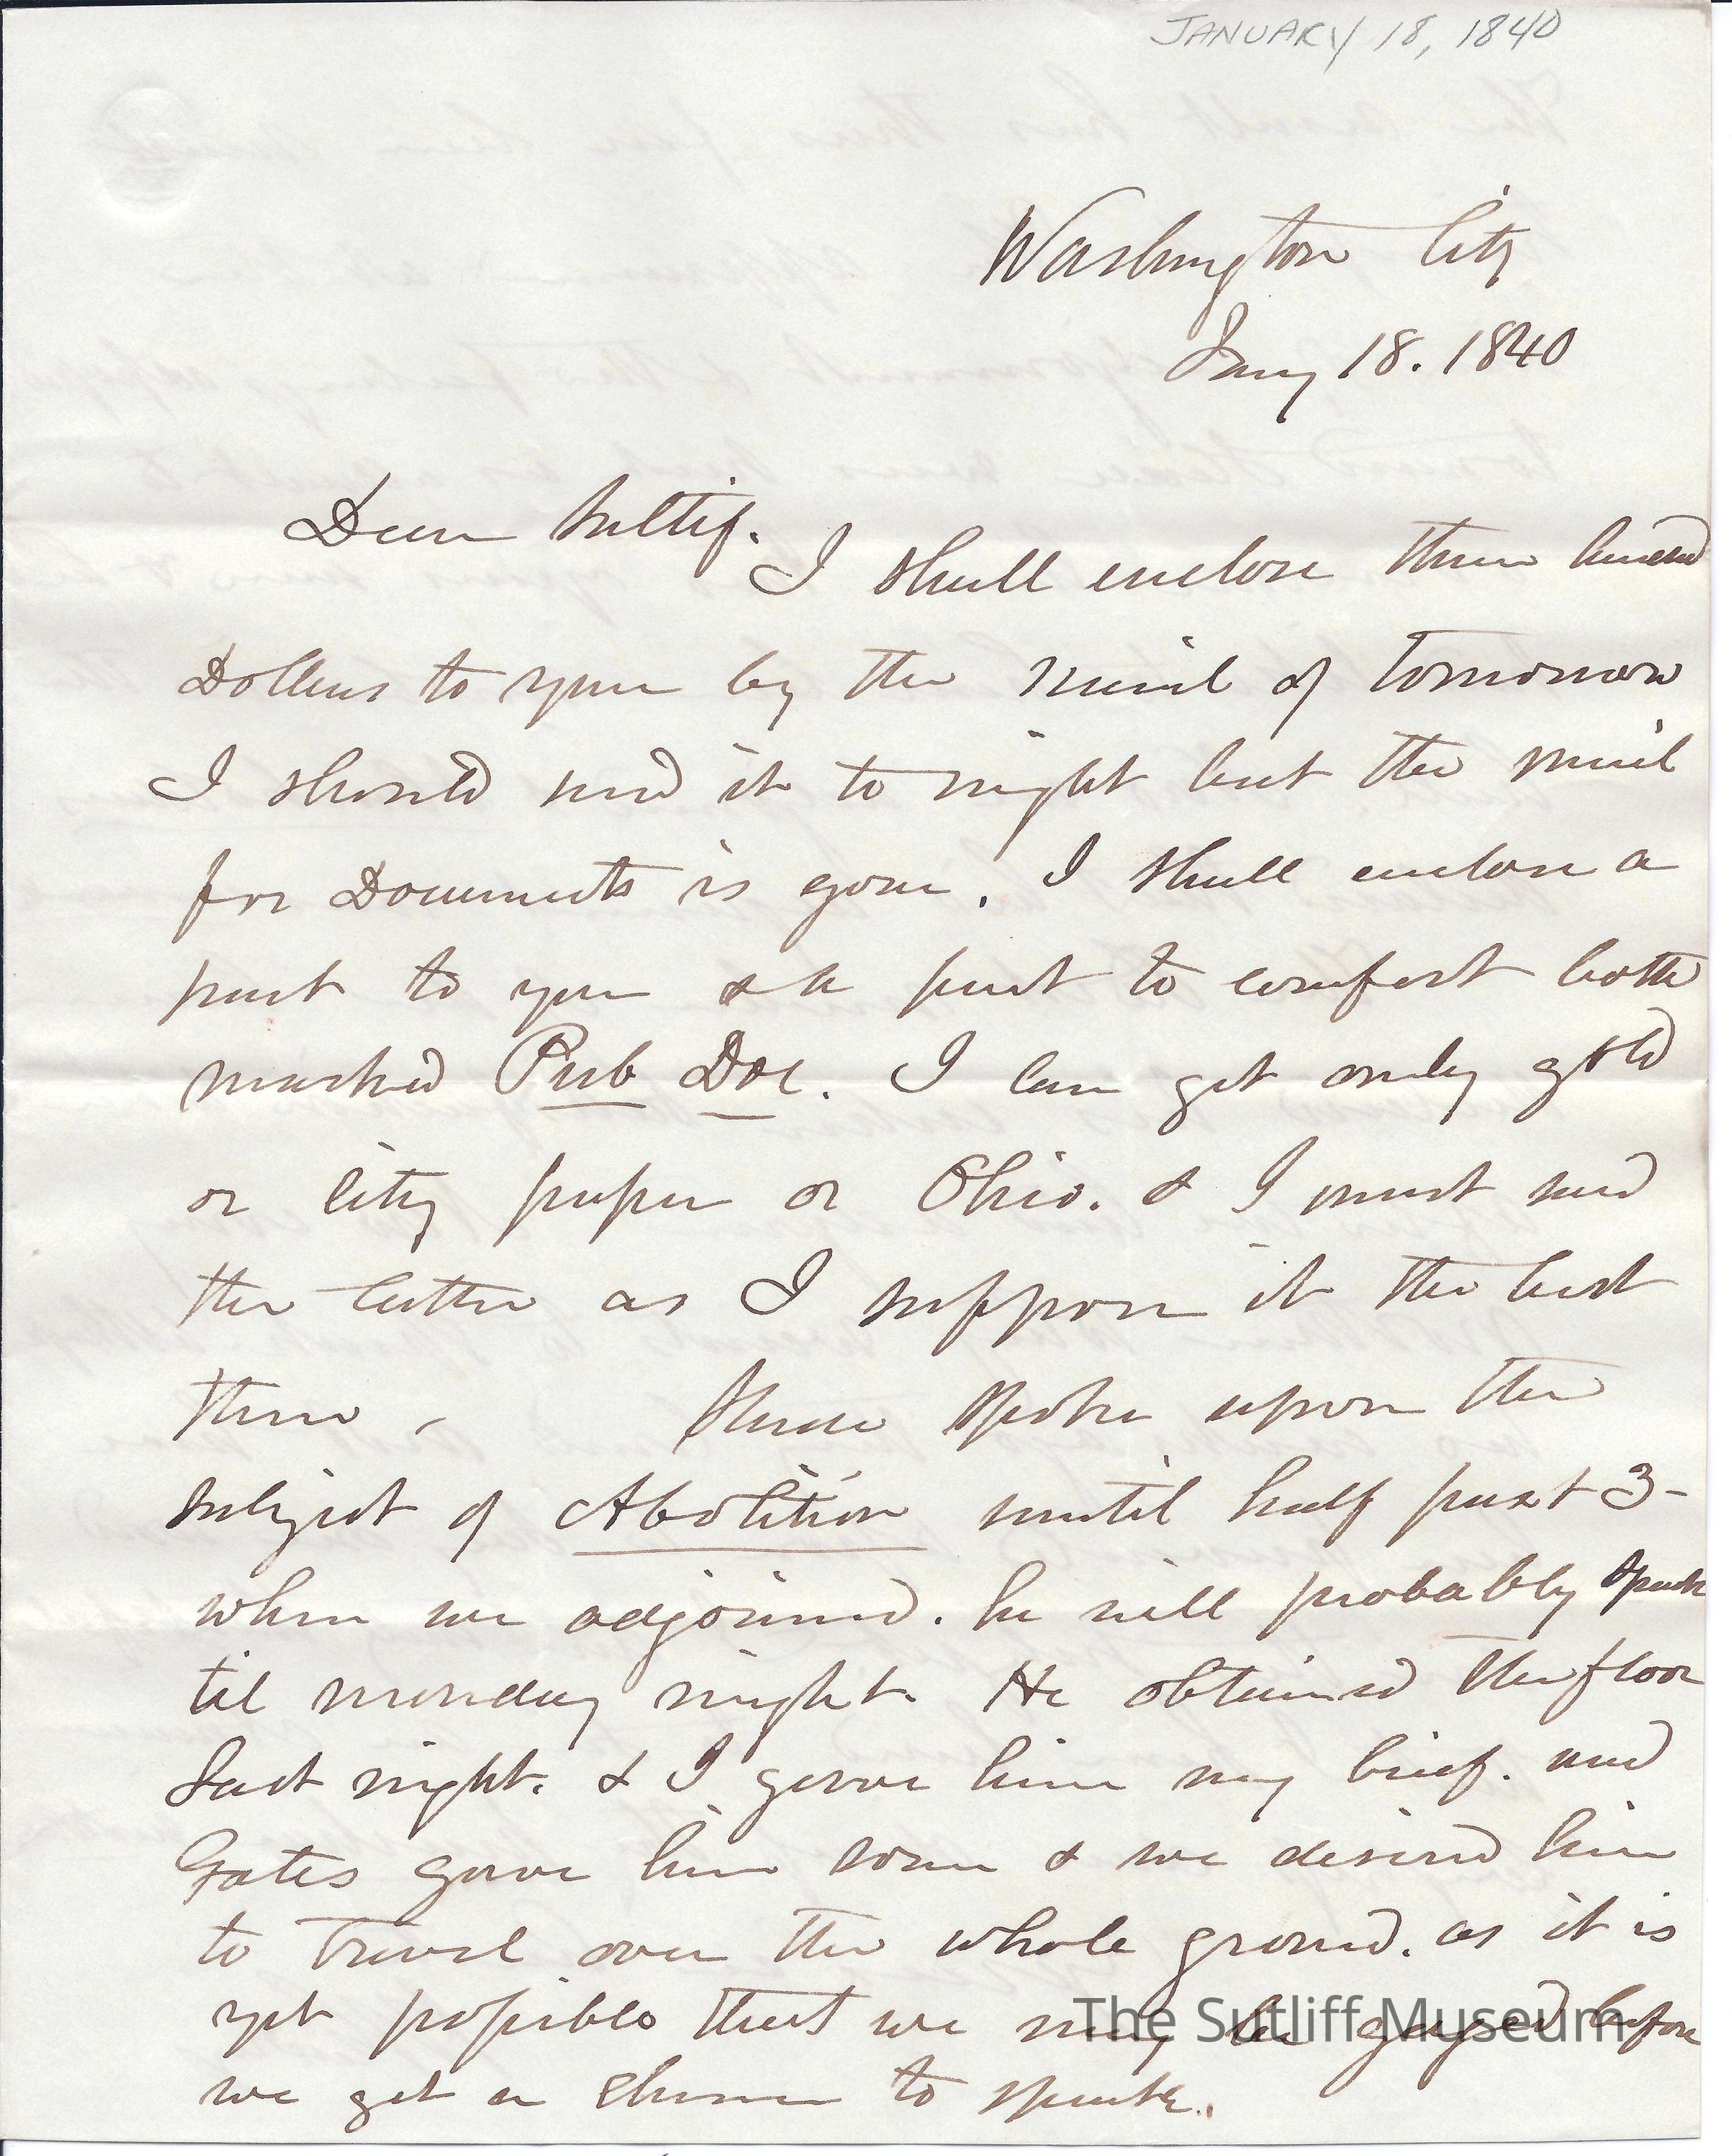 JANUARY 18, 1840
Washington City
Jany 18. 1840
Dear Sutlif.
I shall enclose three hundred
Dollars to you by the mail of tomorrow
I should send it to night but the mail
for Documents is gone. I shall enclose a
part to you & a part to comfort both
marked Pub Doc. I can get only gold
or city paper or Ohio. & I must send
the latter as I suppose it the best
there, Slade spoke upon the
subject of Abolition until half past 3-
when we adjourned. he will probably speak
til monday night. He obtained the floor
last night. & I gave him my brief. and
Gates gave him some & we desired him
to travel over the whole ground. as it is
yet possible that we may be gaged before
we get a chance to speak.
The Sutliff Museum